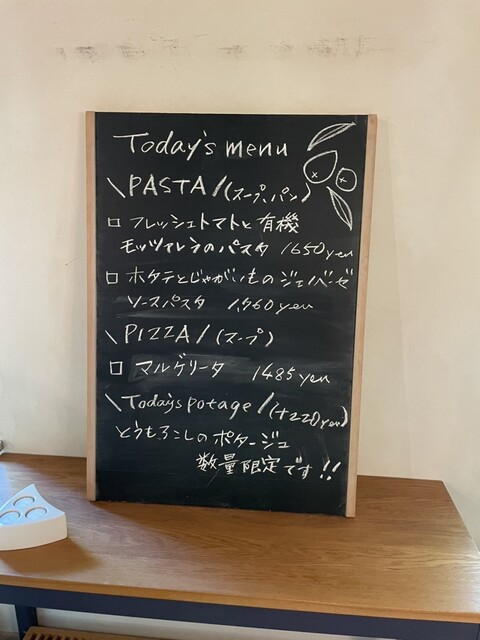 Today's menu
\PASTA/(スープ、パン)
□ フレッシュトマトと有機
モッツァレラのパスタ 1650yen
□ ホタテとじゃがいものジェノベーゼ
ソースパスタ 1,760yen
\PIZZA/(スープ)
□ マルゲリータ 1485yen
\Today's potage/(+220yen)
とうもろこしのポタージュ
数量限定です!!